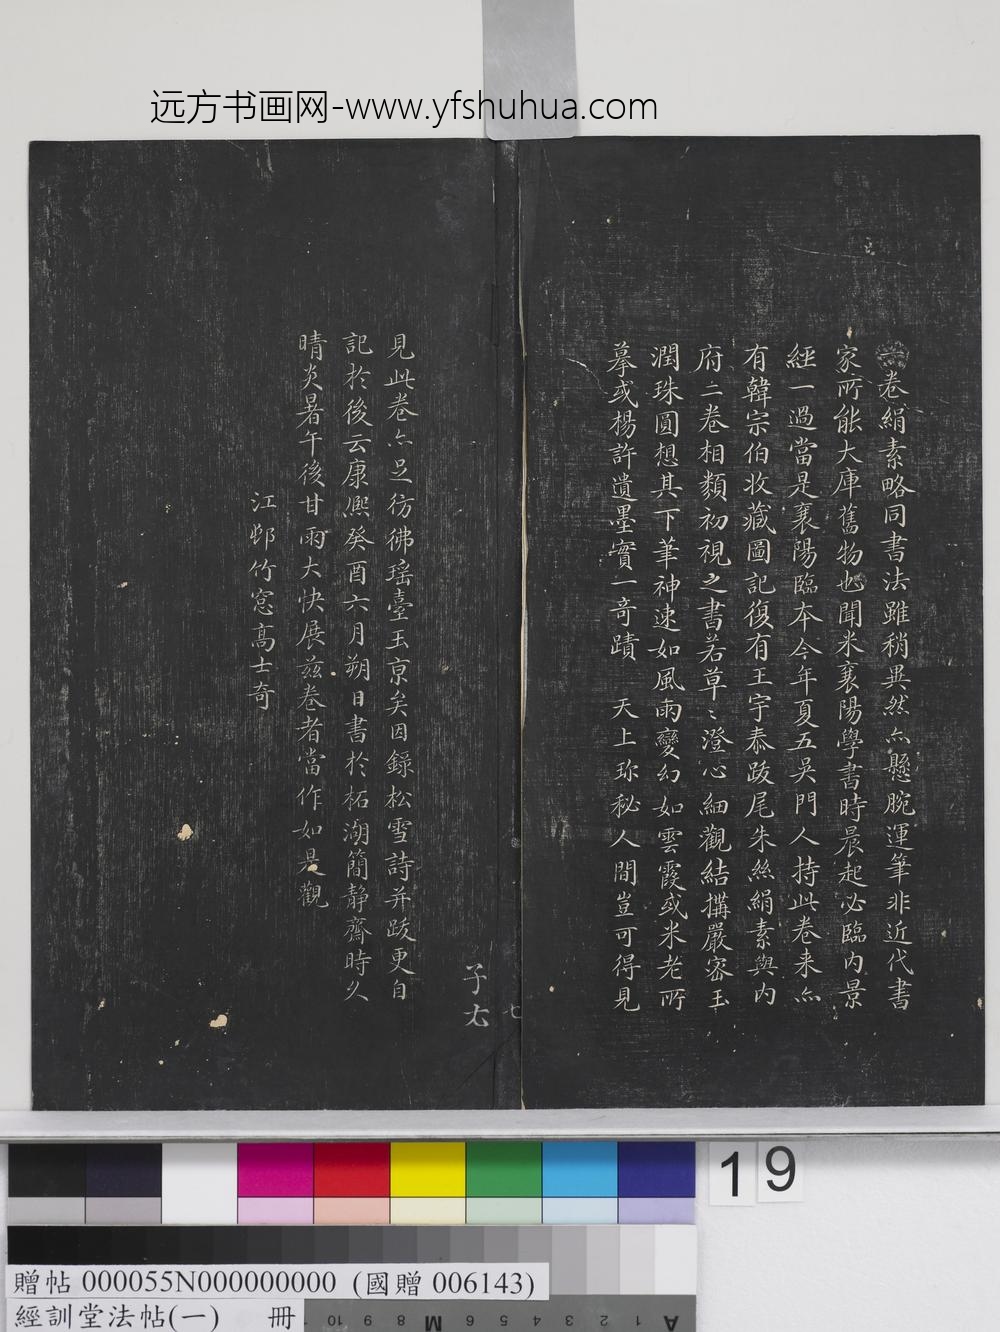 远方书画网-www.yfshuhua.com
卷絹素略同書法雖稍異然亦懸腕運筆非近代書
家所能大庫舊物也聞米襄陽學書時晨起必臨內景
經一過當是襄陽臨本今年夏五吳門人持此卷来亦
有韓宗伯收藏圖記復有王宇泰跋尾朱絲絹素與內
府二卷相類初視之書若草〻澄心細觀結構嚴密玉
潤珠圓想其下筆神速如風雨變幻如雲霞或米老所
摹或楊許遺墨實一奇蹟 天上珎秘人間豈可得見
見此卷亦足彷彿瑶臺玉京矣因錄松雪詩并跋更自
記於後云康熙癸酉六月朔日書於柘湖簡静齋時久
晴炎暑午後甘雨大快展兹卷者當作如是觀
江邨竹窓高士奇
子
七
19
贈帖 000055N000000000 (國贈 006143)
經訓堂法帖(一) 冊
10 9 8 M 6 5 4 3 2 1 A